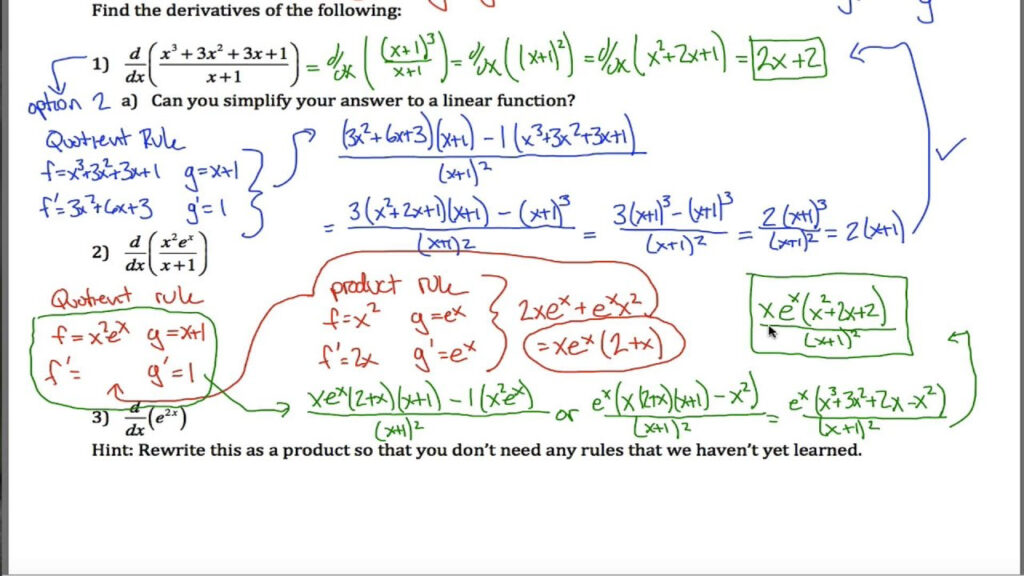 Find the derivatives of the following:
1) d/dx ( (x³ + 3x² + 3x + 1) / (x + 1) ) = d/dx ( (x+1)³ / (x+1) ) = d/dx ( (x+1)² ) = d/dx ( x²+2x+1 ) = 2x+2
option 2 a) Can you simplify your answer to a linear function?
Quotient Rule
f=x³+3x²+3x+1 g=x+1
f'=3x²+6x+3 g'=1
( (3x²+6x+3)(x+1) - 1(x³+3x²+3x+1) ) / (x+1)²
= ( 3(x²+2x+1)(x+1) - (x+1)³ ) / (x+1)² = ( 3(x+1)³ - (x+1)³ ) / (x+1)² = 2(x+1)³ / (x+1)² = 2(x+1) ✓
2) d/dx ( x²eˣ / (x + 1) )
Quotient rule
f=x²eˣ g=x+1
f'= g'=1
product rule
f=x² g=eˣ
f'=2x g'=eˣ
2xeˣ+eˣx²
=xeˣ(2+x)
( xeˣ(2+x)(x+1) - 1(x²eˣ) ) / (x+1)² or eˣ(x(2+x)(x+1) - x²) / (x+1)² = eˣ(x³+3x²+2x-x²) / (x+1)²
xeˣ(x²+2x+2) / (x+1)²
3) d/dx (e²ˣ)
Hint: Rewrite this as a product so that you don't need any rules that we haven't yet learned.